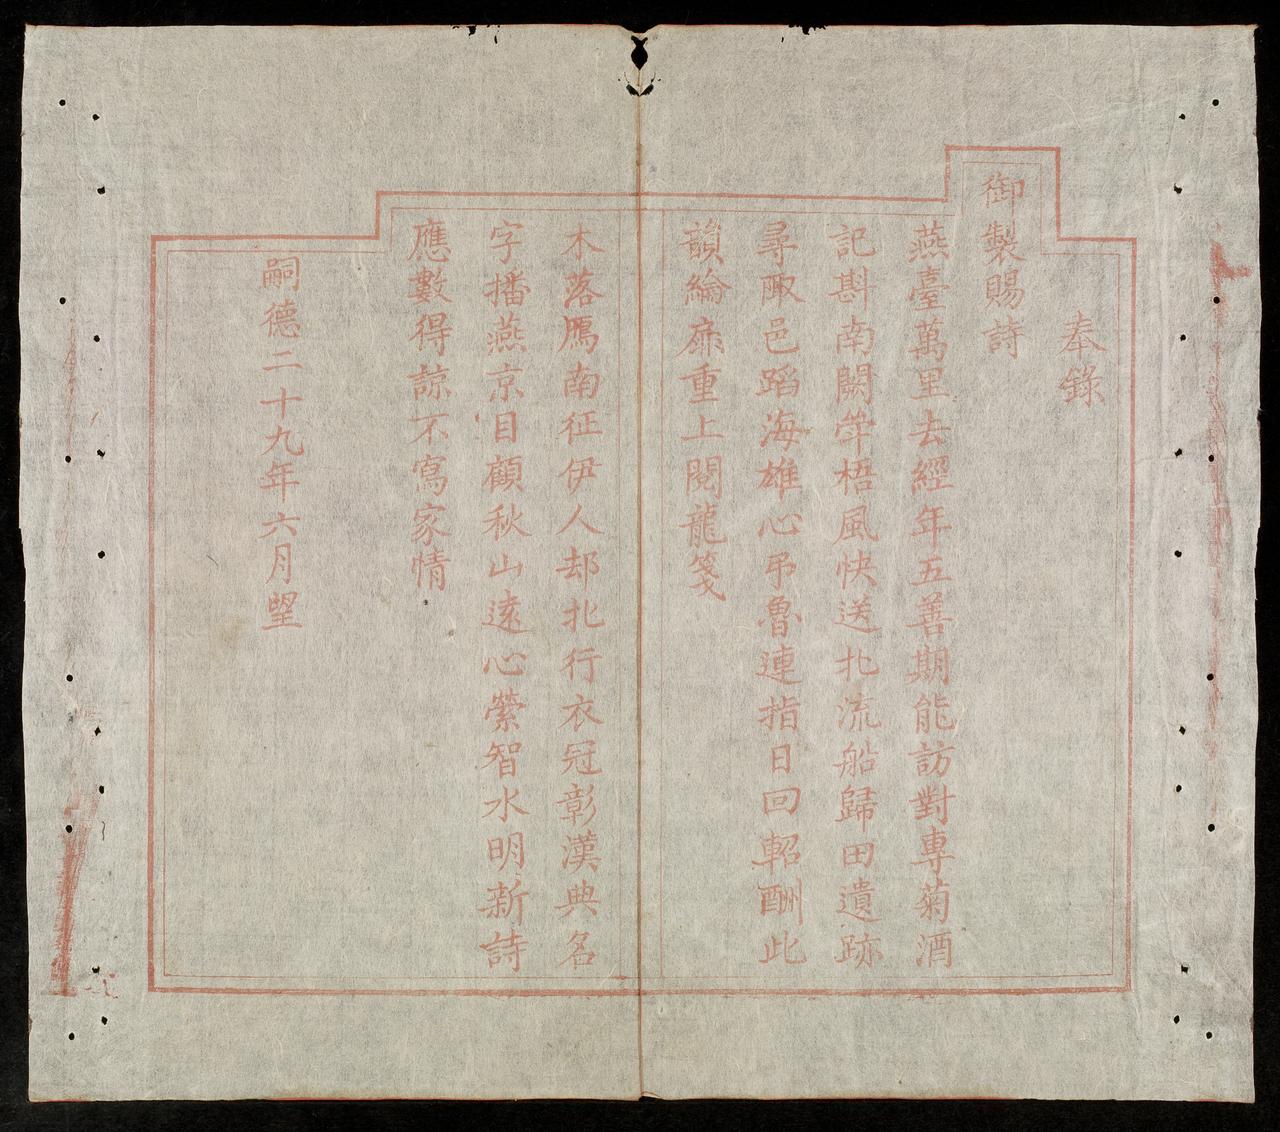 奉錄
御製賜詩
燕臺萬里去經年五善期能訪對專菊酒
記斟南闕常梧風快送北流船歸田遺跡
尋陬邑蹈海雄心弔魯連指日回軺酬此
韻綸扉重上閱龍箋
木落鴈南征伊人却北行衣冠彰漢典名
字播燕京目顧秋山遠心縈智水明新詩
應數得諒不寫家情
嗣德二十九年六月望